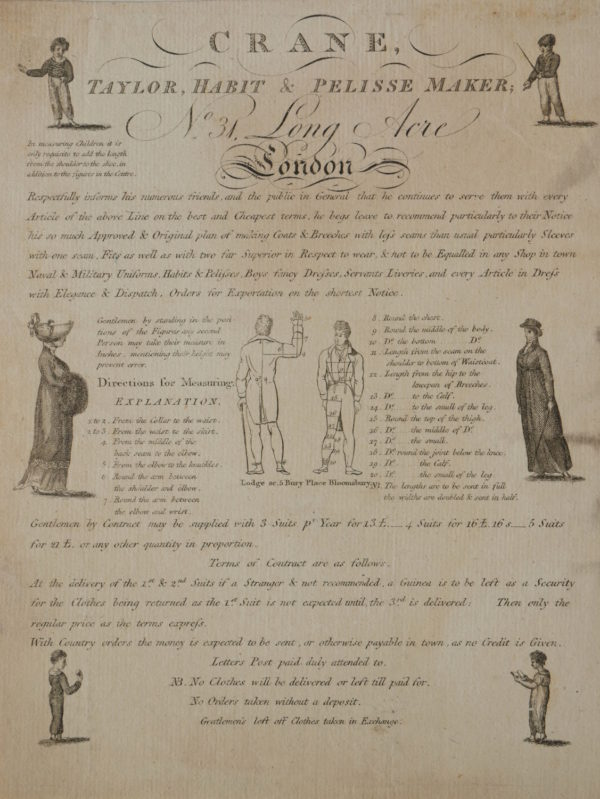 CRANE,
TAYLOR, HABIT & PELISSE MAKER;
No. 31, Long Acre
London
In measuring Children it is
only requisite to add the length
from the shoulder to the shoe, in
addition to the figures in the Centre.
Respectfully informs his numerous friends, and the public in General that he continues to serve them with every
Article of the above Line on the best and Cheapest terms, he begs leave to recommend particularly to their Notice
his so much Approved & Original plan of making Coats & Breeches with less seams than usual particularly Sleeves
with one seam, Fits as well as with two far Superior in Respect to wear, & not to be Equalled in any Shop in town
Naval & Military Uniforms, Habits & Pelisses, Boys fancy Dresses, Servants Liveries, and every Article in Dress
with Elegance & Dispatch, Orders for Exportation on the shortest Notice.
Gentlemen by standing in the posi-
tions of the Figures any second
Person may take their measure in
Inches. mentioning their height may
prevent error.
Directions for Measuring.
EXPLANATION.
1 to 2. From the Collar to the waist.
2 to 3. From the waist to the skirt.
4. From the middle of the
back seam to the elbow.
5. From the elbow to the knuckles.
6. Round the arm between
the shoulder and elbow.
7. Round the arm between
the elbow and wrist.
8. Round the chest.
9. Round the middle of the body.
10. Do. the bottom Do.
11. Length from the seam on the
shoulder to bottom of Waistcoat.
12. Length from the hip to the
kneepan of Breeches.
13. Do. .... to the Calf.
14. Do. .... to the small of the leg.
15. Round the top of the thigh.
16. Do. .... the middle of Do.
17. Do. .... the small.
18. Do. round the joint below the knee.
19. Do. .... the Calf.
20. Do. .... the small of the leg.
NB. The lengths are to be sent in full
the widths are doubled & sent in half.
Lodge sc. 5 Bury Place Bloomsbury.
Gentlemen by Contract may be supplied with 3 Suits pr. Year for 13 £. .... 4 Suits for 16 £. 16 s .... 5 Suits
for 21 £. or any other quantity in proportion.
Terms of Contract are as follows.
At the delivery of the 1st & 2nd Suits if a Stranger & not recommended, a Guinea is to be left as a Security
for the Clothes being returned as the 1st Suit is not expected until, the 3rd is delivered: Then only the
regular price as the terms express.
With Country orders the money is expected to be sent, or otherwise payable in town, as no Credit is Given.
Letters Post paid duly attended to.
NB. No Clothes will be delivered or left till paid for.
No Orders taken without a deposit.
Gentlemen's left off Clothes taken in Exchange.